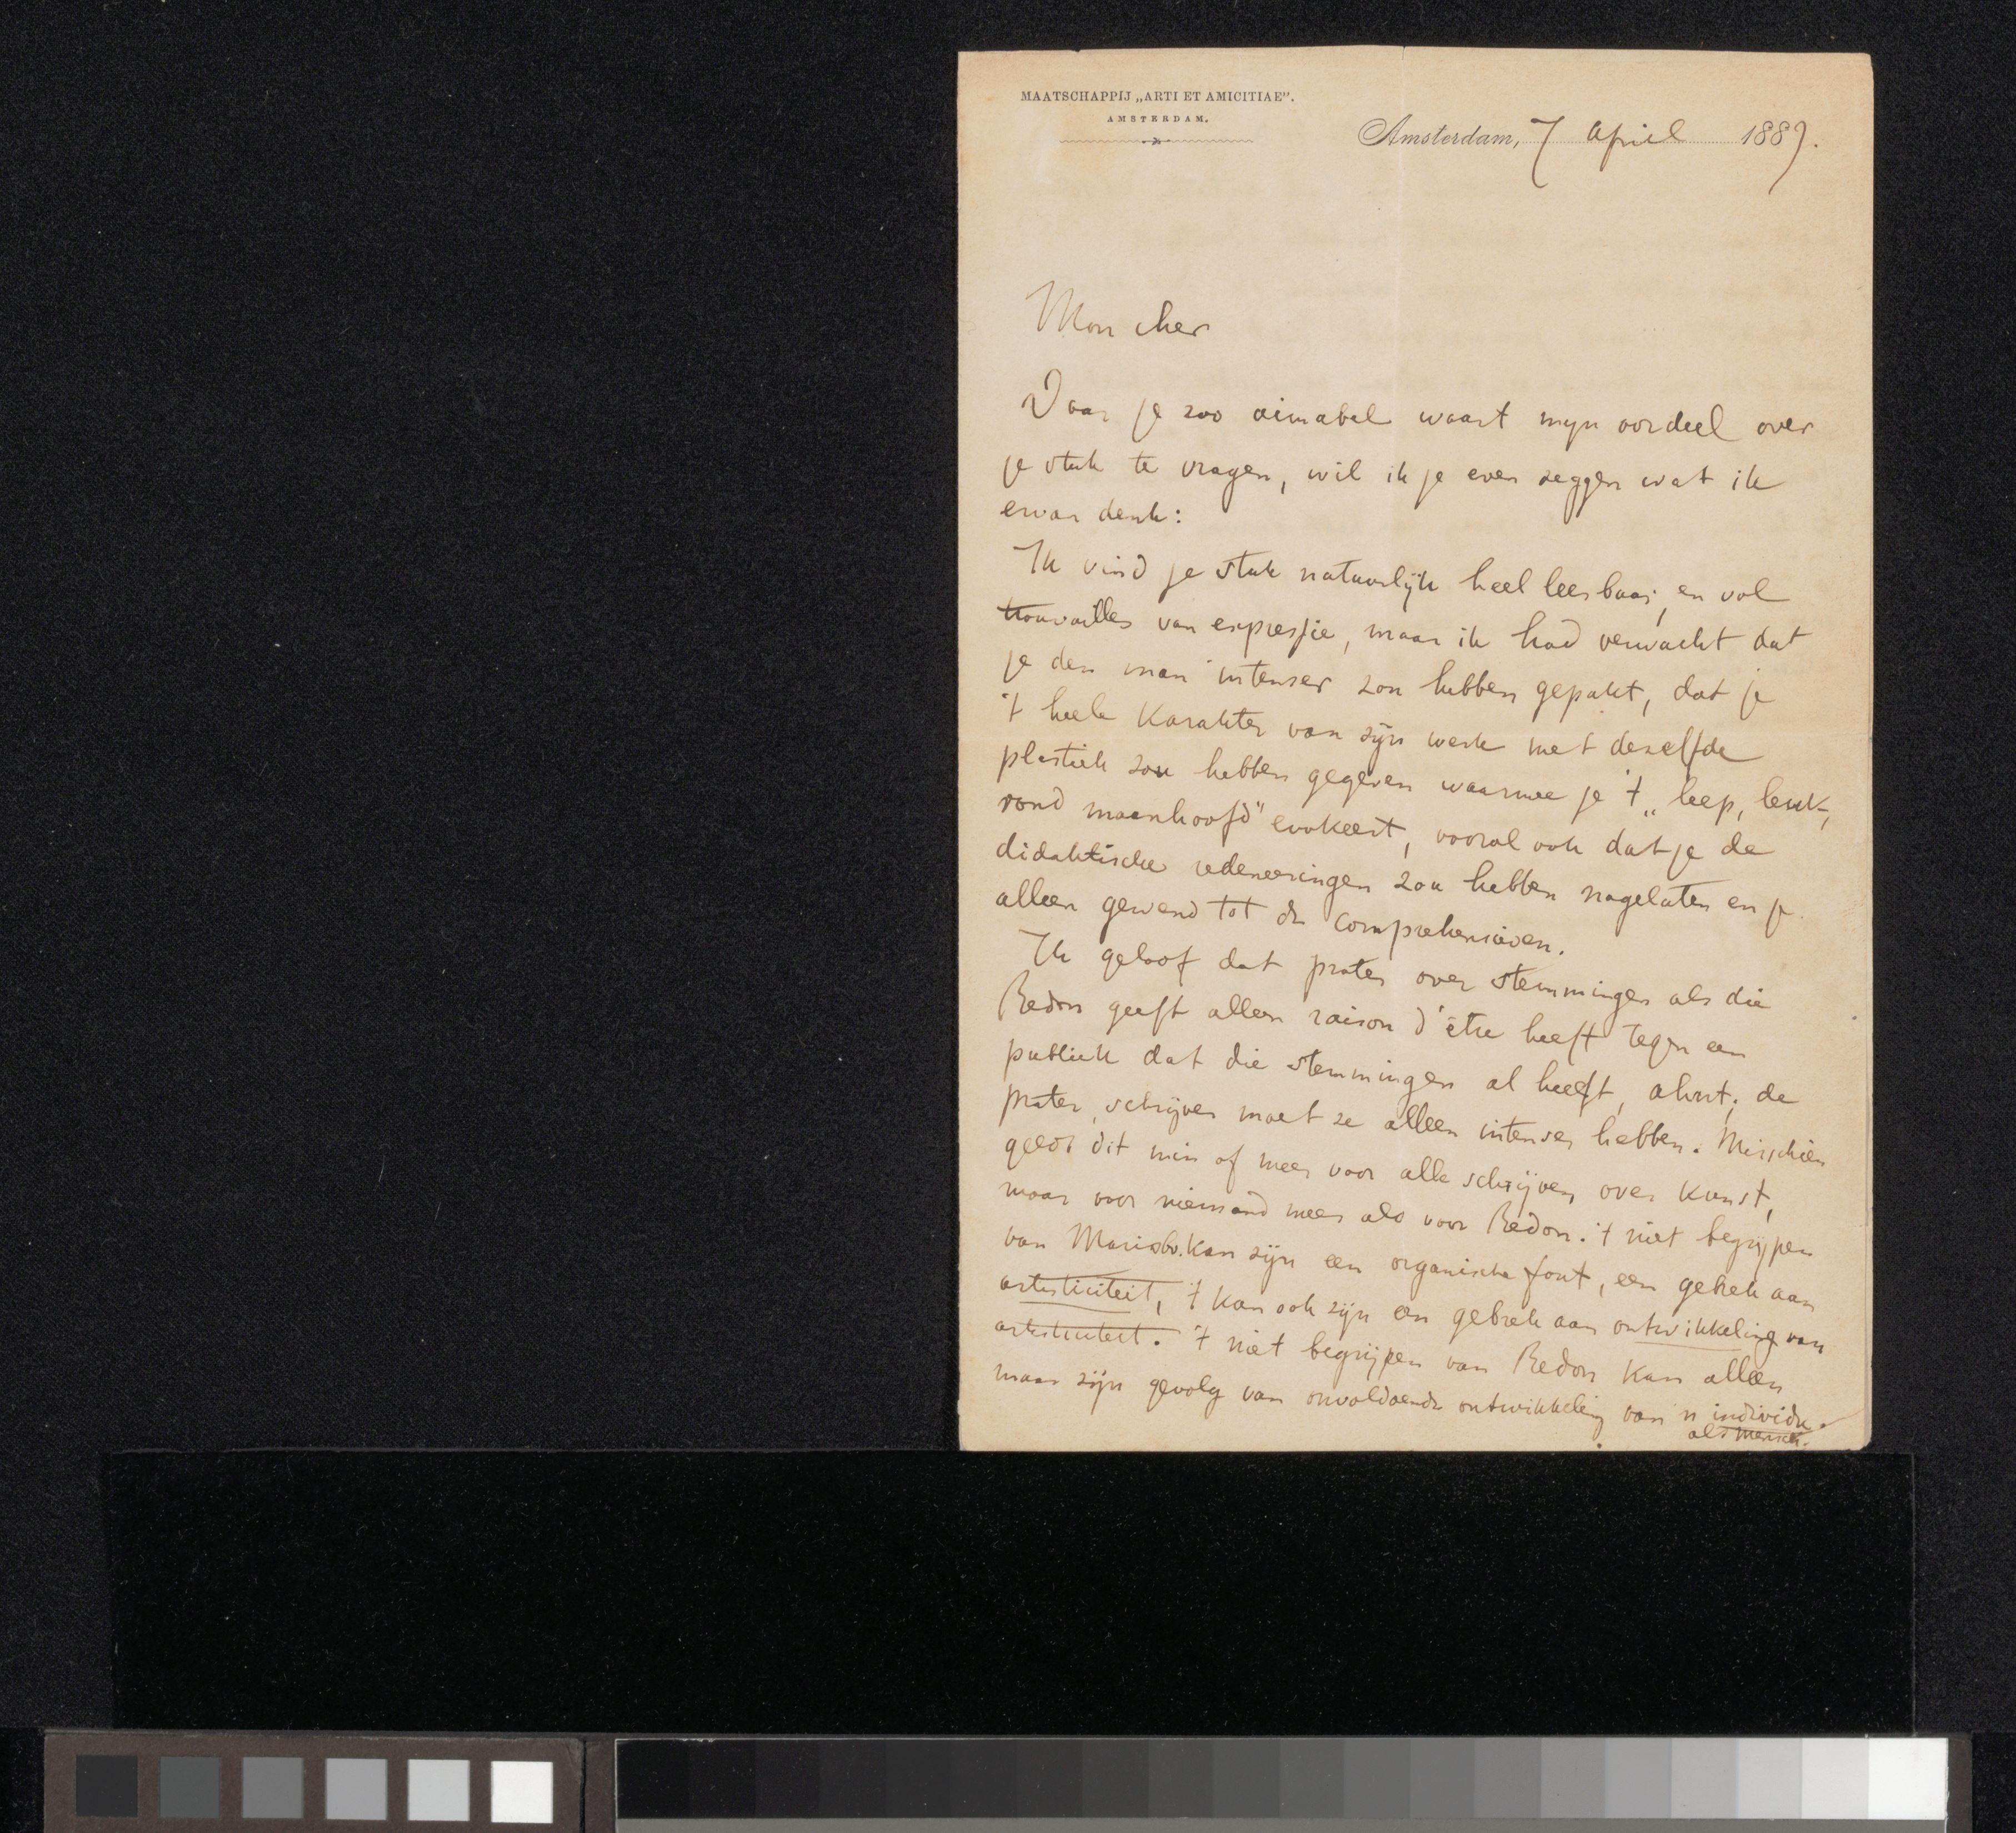 MAATSCHAPPIJ „ARTI ET AMICITIAE”.
AMSTERDAM.
Amsterdam, 7 April 1889.
Mon cher
Daar je zoo aimabel waart mijn oordeel over
je stuk te vragen, wil ik je even zeggen wat ik
ervan denk:
Ik vind je stuk natuurlijk heel leesbaar, en vol
trouvailles van expressie, maar ik had verwacht dat
je den man intenser zou hebben gepakt, dat je
't heele Karakter van zijn werk met dezelfde
plastiek zou hebben gegeven waarmee je 't „leep, leuk,
rond maanhoofd” evokeert, vooral ook dat je de
didaktische redeneeringen zou hebben nagelaten en je
alleen gewend tot de comprehensieven.
Ik geloof dat praten over stemmingen als die
Redon geeft alleen raison d'être heeft tegen een
publiek dat die stemmingen al heeft, de
prater, schrijver moet ze alleen intenser hebben. Misschien
geldt dit min of meer voor alle schrijven over Kunst,
maar voor niemand meer als voor Redon. 't niet begrijpen
van Maris bv. kan zijn een organische fout, een gebrek aan
artisticiteit, 't kan ook zijn een gebrek aan ontwikkeling van
artisticiteit. 't niet begrijpen van Redon kan alleen
maar zijn gevolg van onvoldoende ontwikkeling van 'n individu
als mensch.